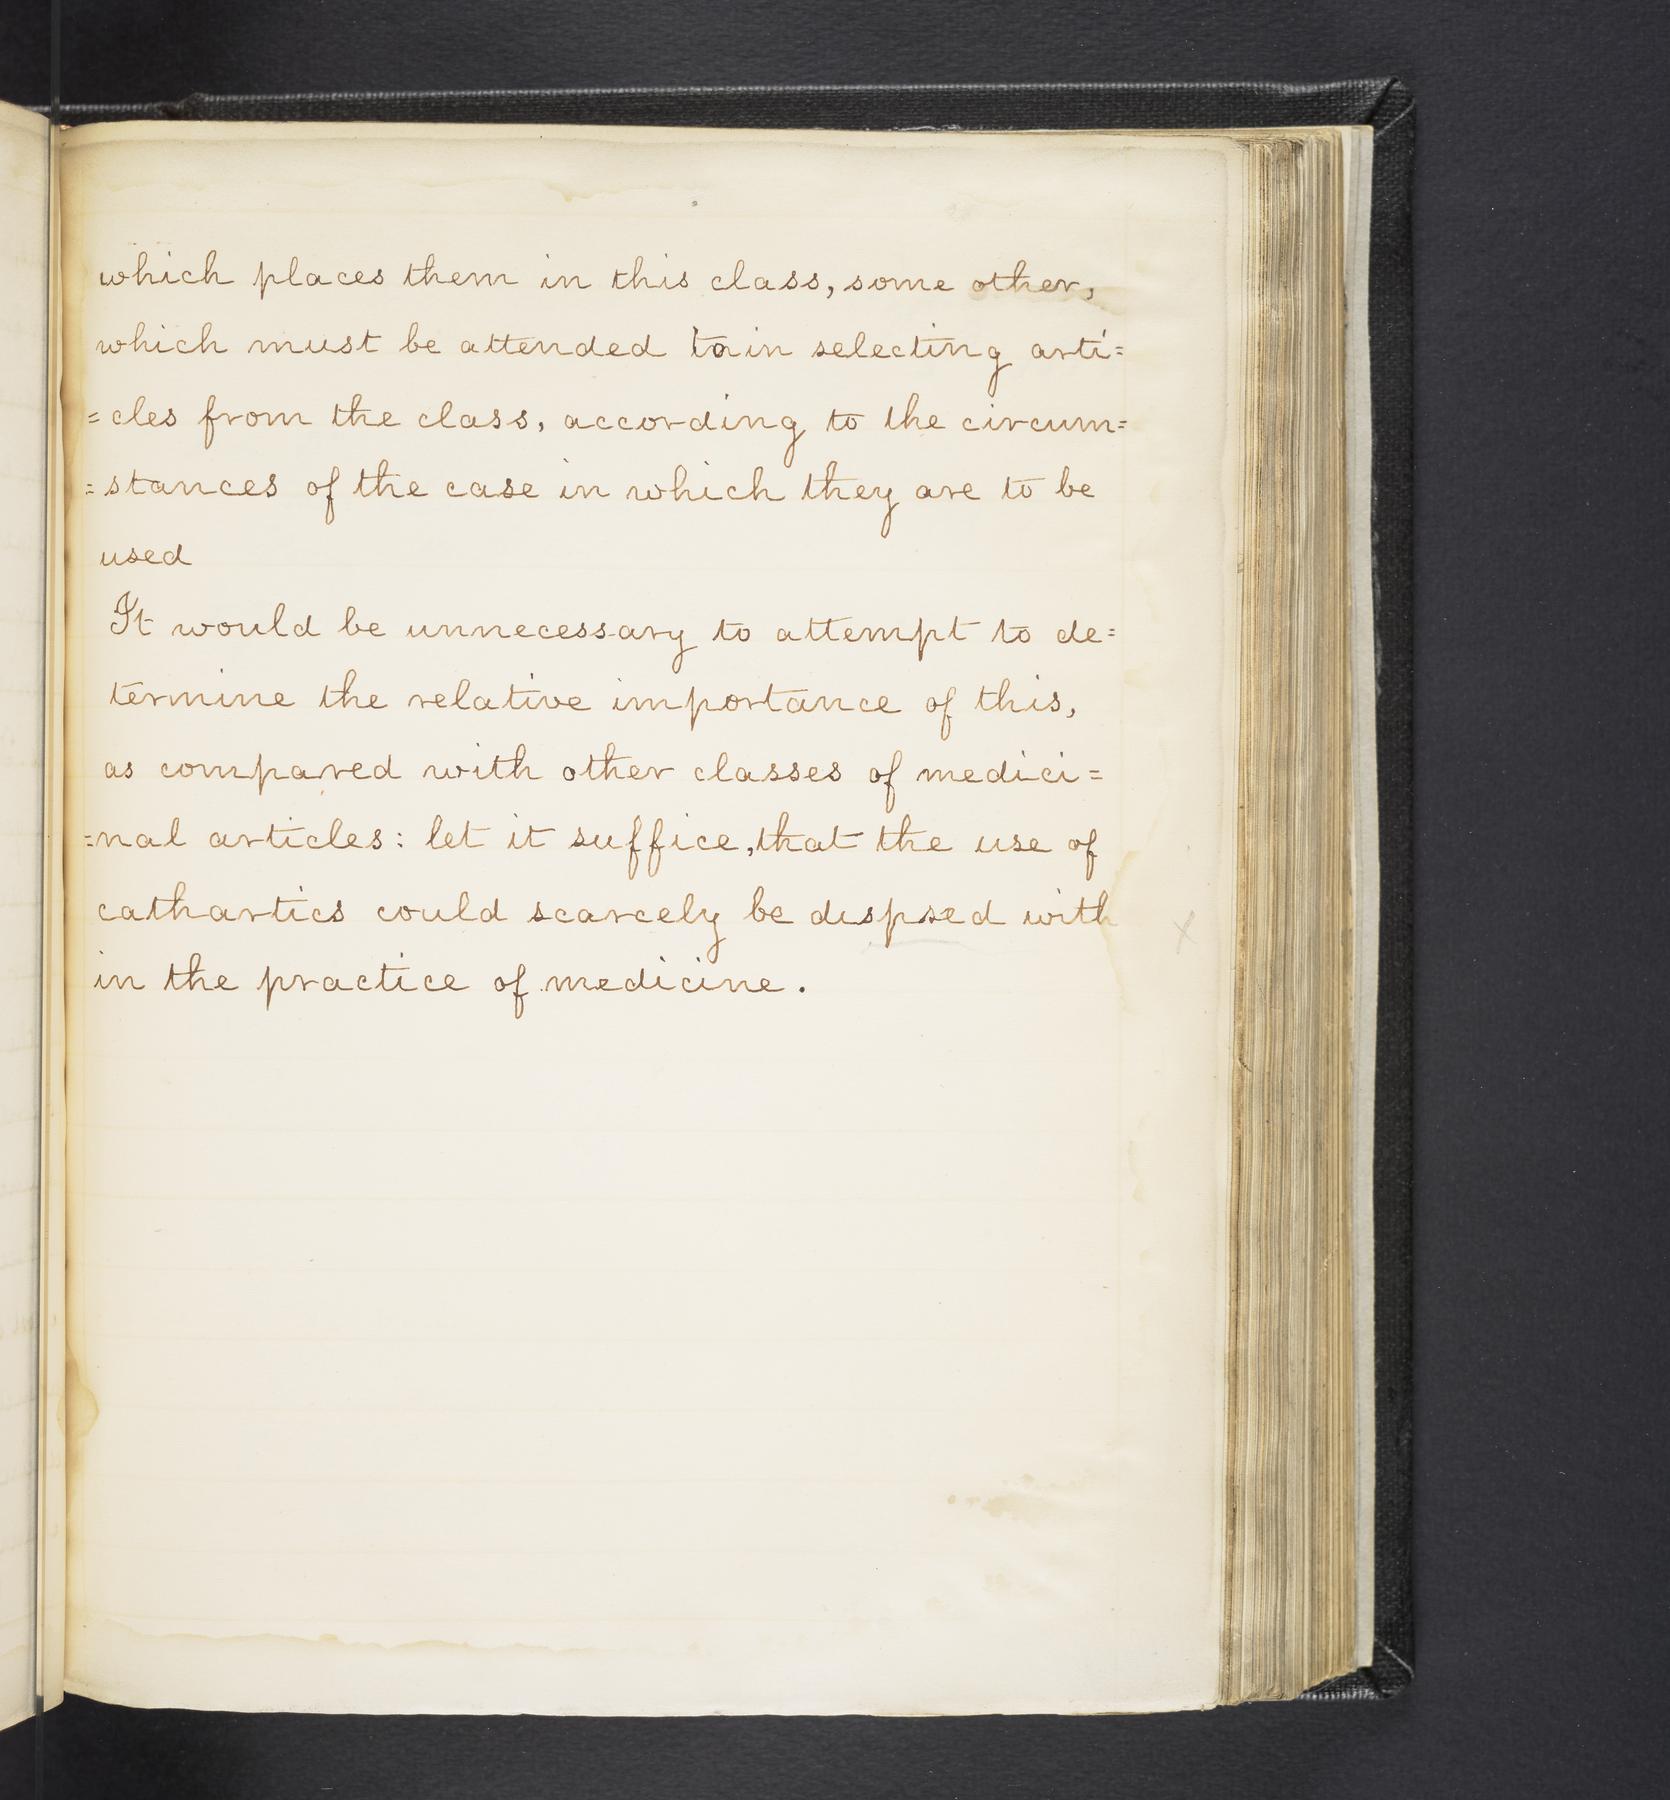 which places them in this class, some other,
which must be attended to in selecting arti=
=cles from the class, according to the circum=
=stances of the case in which they are to be
used
It would be unnecessary to attempt to de=
termine the relative importance of this,
as compared with other classes of medici=
=nal articles: let it suffice, that the use of
cathartics could scarcely be dispsed with
in the practice of medicine.